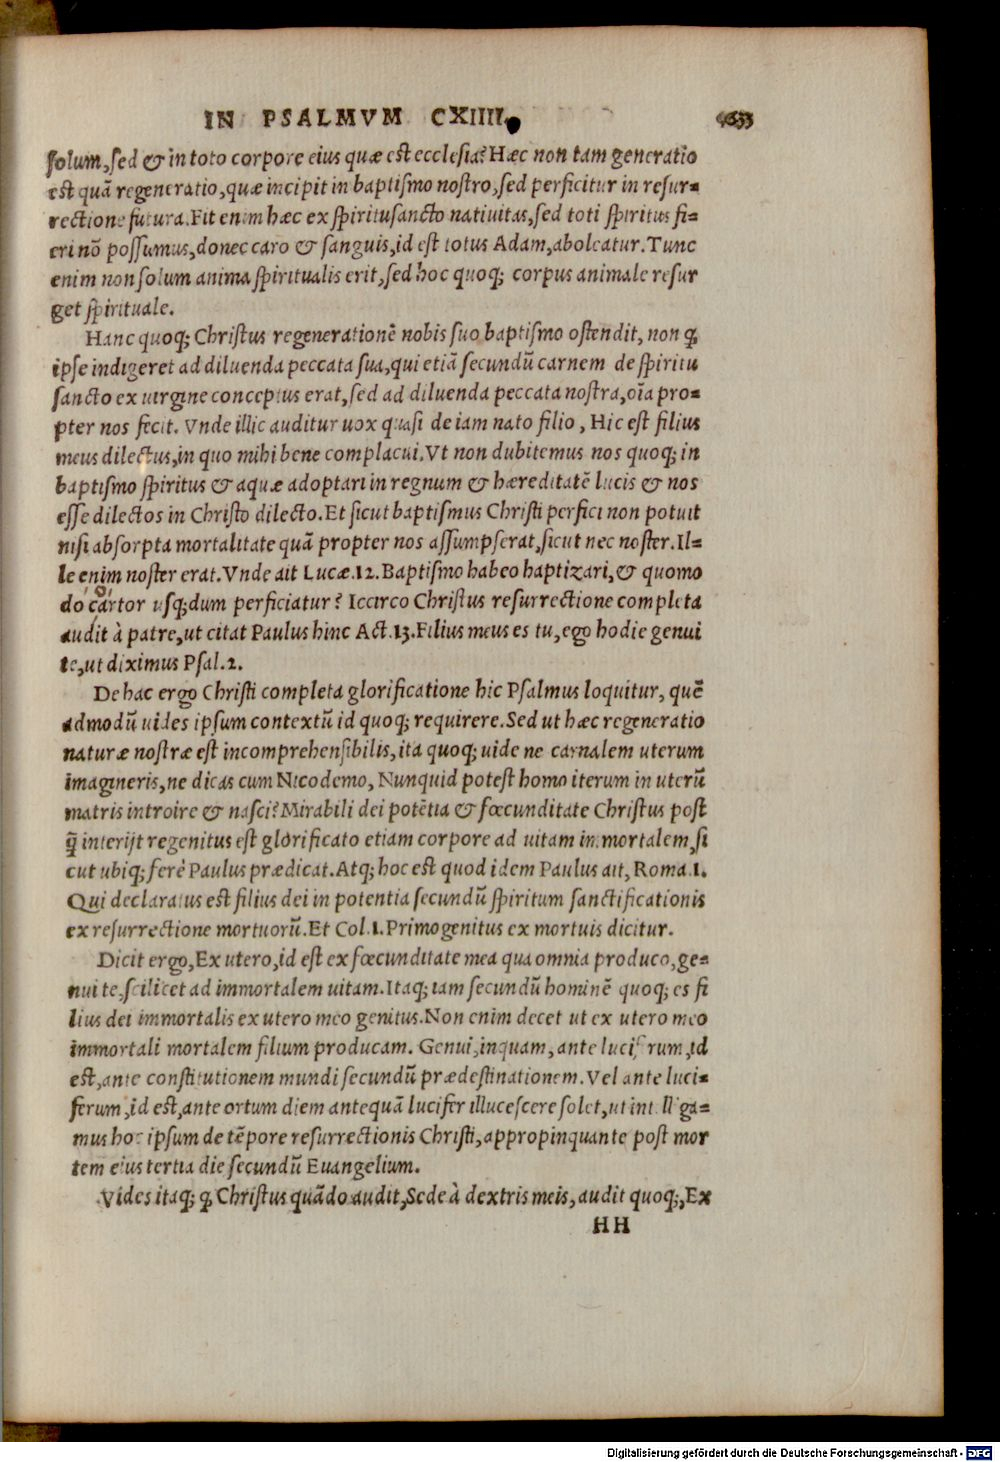 IN PSALMVM CXIIII. 633
solum, sed & in toto corpore eius quæ est ecclesia? Hæc non tam generatio
est quã regeneratio, quæ incipit in baptismo nostro, sed perficitur in resur-
rectione futura. Fit enim hæc ex spiritusancto natiuitas, sed toti spiritus fi-
eri nõ possumus, donec caro & sanguis, id est totus Adam, aboleatur. Tunc
enim non solum anima spiritualis erit, sed hoc quoq; corpus animale resur
get spirituale.
Hanc quoq; Christus regenerationẽ nobis suo baptismo ostendit, non ꝙ
ipse indigeret ad diluenda peccata sua, qui etiã secundũ carnem de spiritu
sancto ex uirgine conceptus erat, sed ad diluenda peccata nostra, oĩa pro-
pter nos fecit. Vnde illic auditur uox quasi de iam nato filio, Hic est filius
meus dilectus, in quo mihi bene complacui. Vt non dubitemus nos quoq; in
baptismo spiritus & aquæ adoptari in regnum & hæreditatẽ lucis & nos
esse dilectos in Christo dilecto. Et sicut baptismus Christi perfici non potuit
nisi absorpta mortalitate quã propter nos assumpserat, sicut nec noster. Il-
le enim noster erat. Vnde ait Lucæ. 12. Baptismo habeo baptizari, & quomo
do cartor usq; dum perficiatur? Iccirco Christus resurrectione completa
audit à patre, ut citat Paulus hinc Act. 13. Filius meus es tu, ego hodie genui
te, ut diximus Psal. 2.
De hac ergo Christi completa glorificatione hic Psalmus loquitur, quẽ
admodũ uides ipsum contextũ id quoq; requirere. Sed ut hæc regeneratio
naturæ nostræ est incomprehensibilis, ita quoq; uide ne carnalem uterum
imagineris, ne dicas cum Nicodemo, Nunquid potest homo iterum in uterũ
matris introire & nasci? Mirabili dei potẽtia & fœcunditate Christus post
q̃ interijt regenitus est glorificato etiam corpore ad uitam immortalem, si
cut ubiq; ferè Paulus prædicat. Atq; hoc est quod idem Paulus ait, Roma. 1.
Qui declaratus est filius dei in potentia secundũ spiritum sanctificationis
ex resurrectione mortuorũ. Et Col. 1. Primogenitus ex mortuis dicitur.
Dicit ergo, Ex utero, id est ex fœcunditate mea qua omnia produco, ge-
nui te, scilicet ad immortalem uitam. Itaq; iam secundũ hominẽ quoq; es fi
lius dei immortalis ex utero meo genitus. Non enim decet ut ex utero meo
immortali mortalem filium producam. Genui, inquam, ante luciferum, id
est, ante constitutionem mundi secundũ prædestinationem. Vel ante luci-
ferum, id est, ante ortum diem antequã lucifer illucescere solet, ut intelliga-
mus hoc ipsum de tẽpore resurrectionis Christi, appropinquante post mor
tem eius tertia die secundũ Euangelium.
Vides itaq; ꝙ Christus quãdo audit, Sede à dextris meis, audit quoq;, Ex
HH
Digitalisierung gefördert durch die Deutsche Forschungsgemeinschaft - DFG